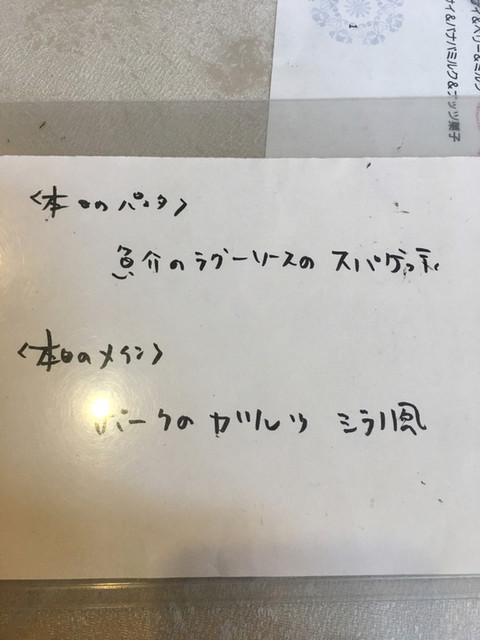 ィ&ベリー&ミルク
ィ&バナバミルク&ナッツ菓子
1
<本日のパスタ>
魚介のラグーソースの スパゲッティ
<本日のメイン>
ポークの カツレツ ミラノ風